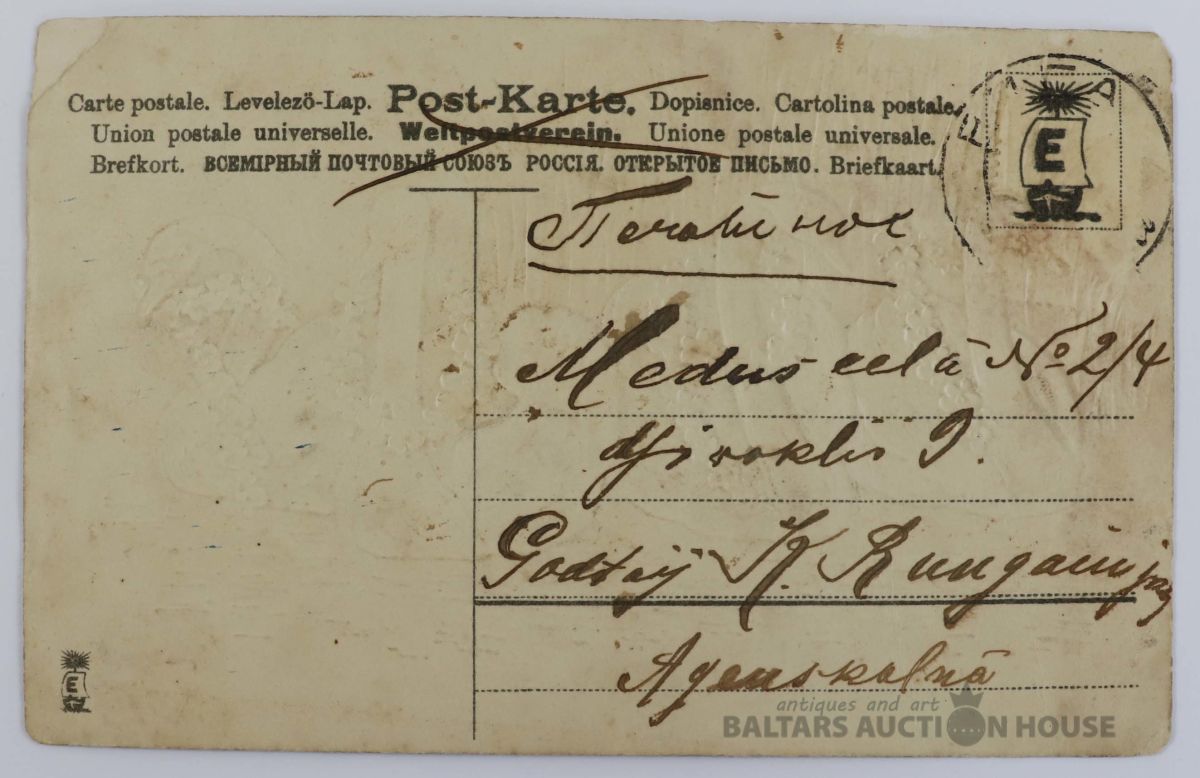 Carte postale. Levelező-Lap. Post-Karte. Dopisnice. Cartolina postale.
Union postale universelle. Weltpostverein. Unione postale universale.
Brefkort. ВСЕМІРНЫЙ ПОЧТОВЫЙ СОЮЗЪ РОССІЯ. ОТКРЫТОЕ ПИСЬМО. Briefkaart.
E
Medus eelā № 2/4
dsivoklis 9.
K.
Agenskalnā
E
antiques and art
BALTARS AUCTION HOUSE